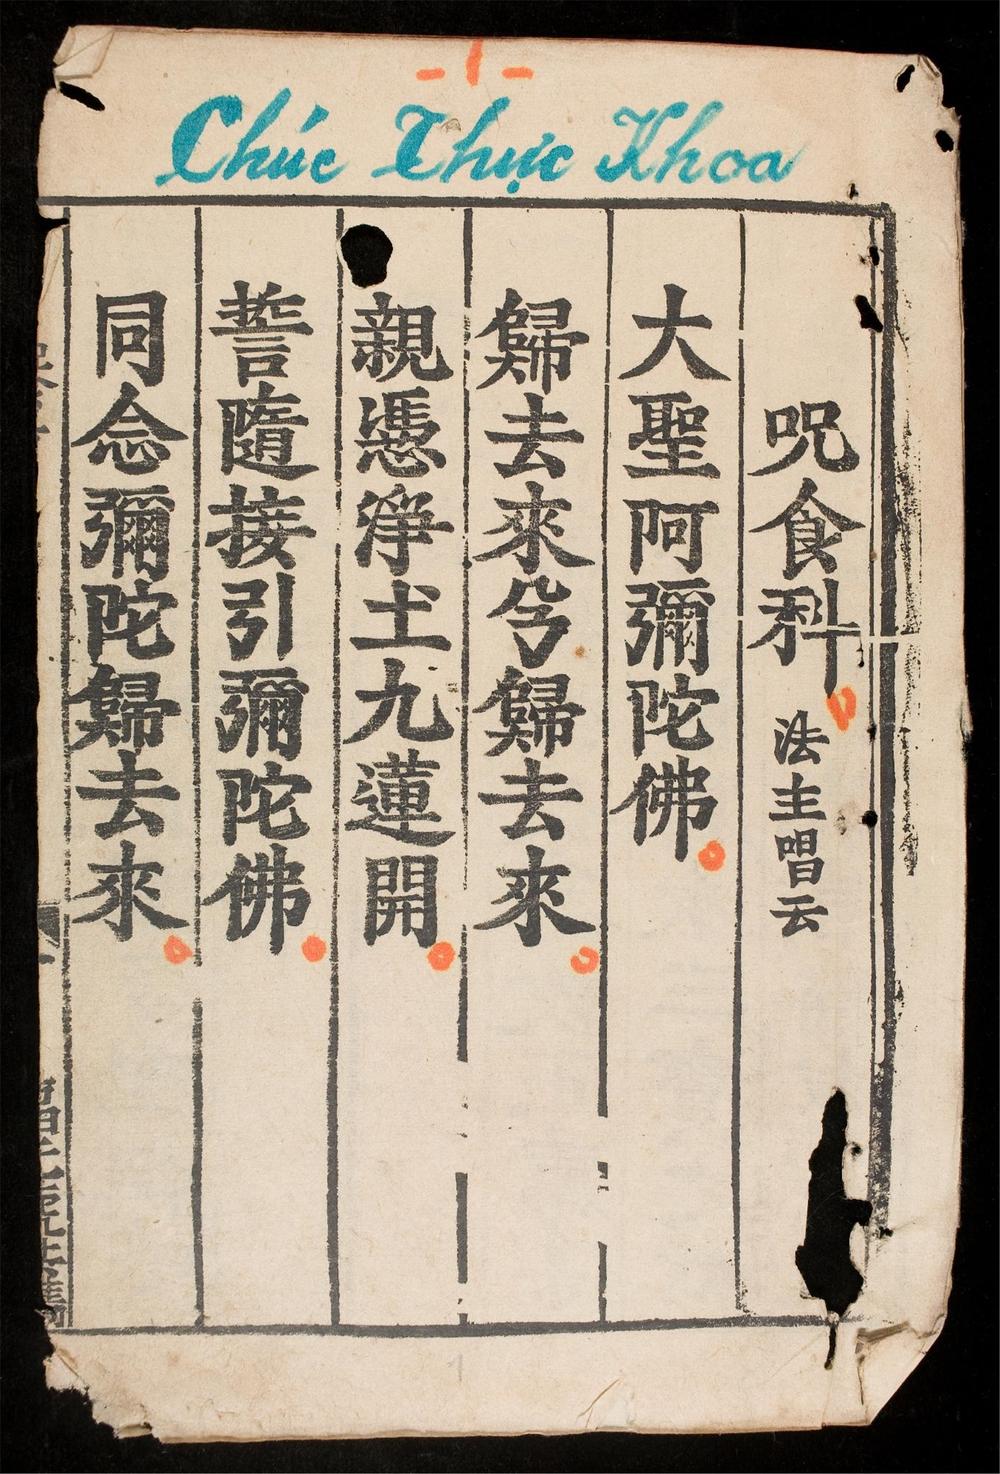 - 1 -
Chúc Thực Khoa
呪食科 法主唱云
大聖阿彌陀佛
歸去來兮歸去來
親憑淨土九蓮開
誓隨接引彌陀佛
同念彌陀歸去來